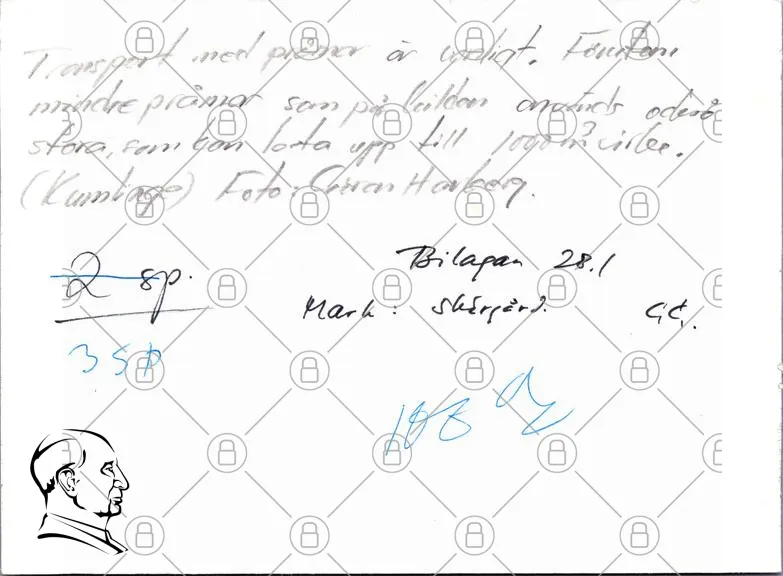 Transport med pråmar är vanligt. Förutom
mindre pråmar som på bilden används också
stora, som kan lasta upp till 1000 m³ virke.
(Kumlinge) Foto: Göran Havberg.
2 sp.
Bilagan 28.1
Mark: skärgård.
3 sp